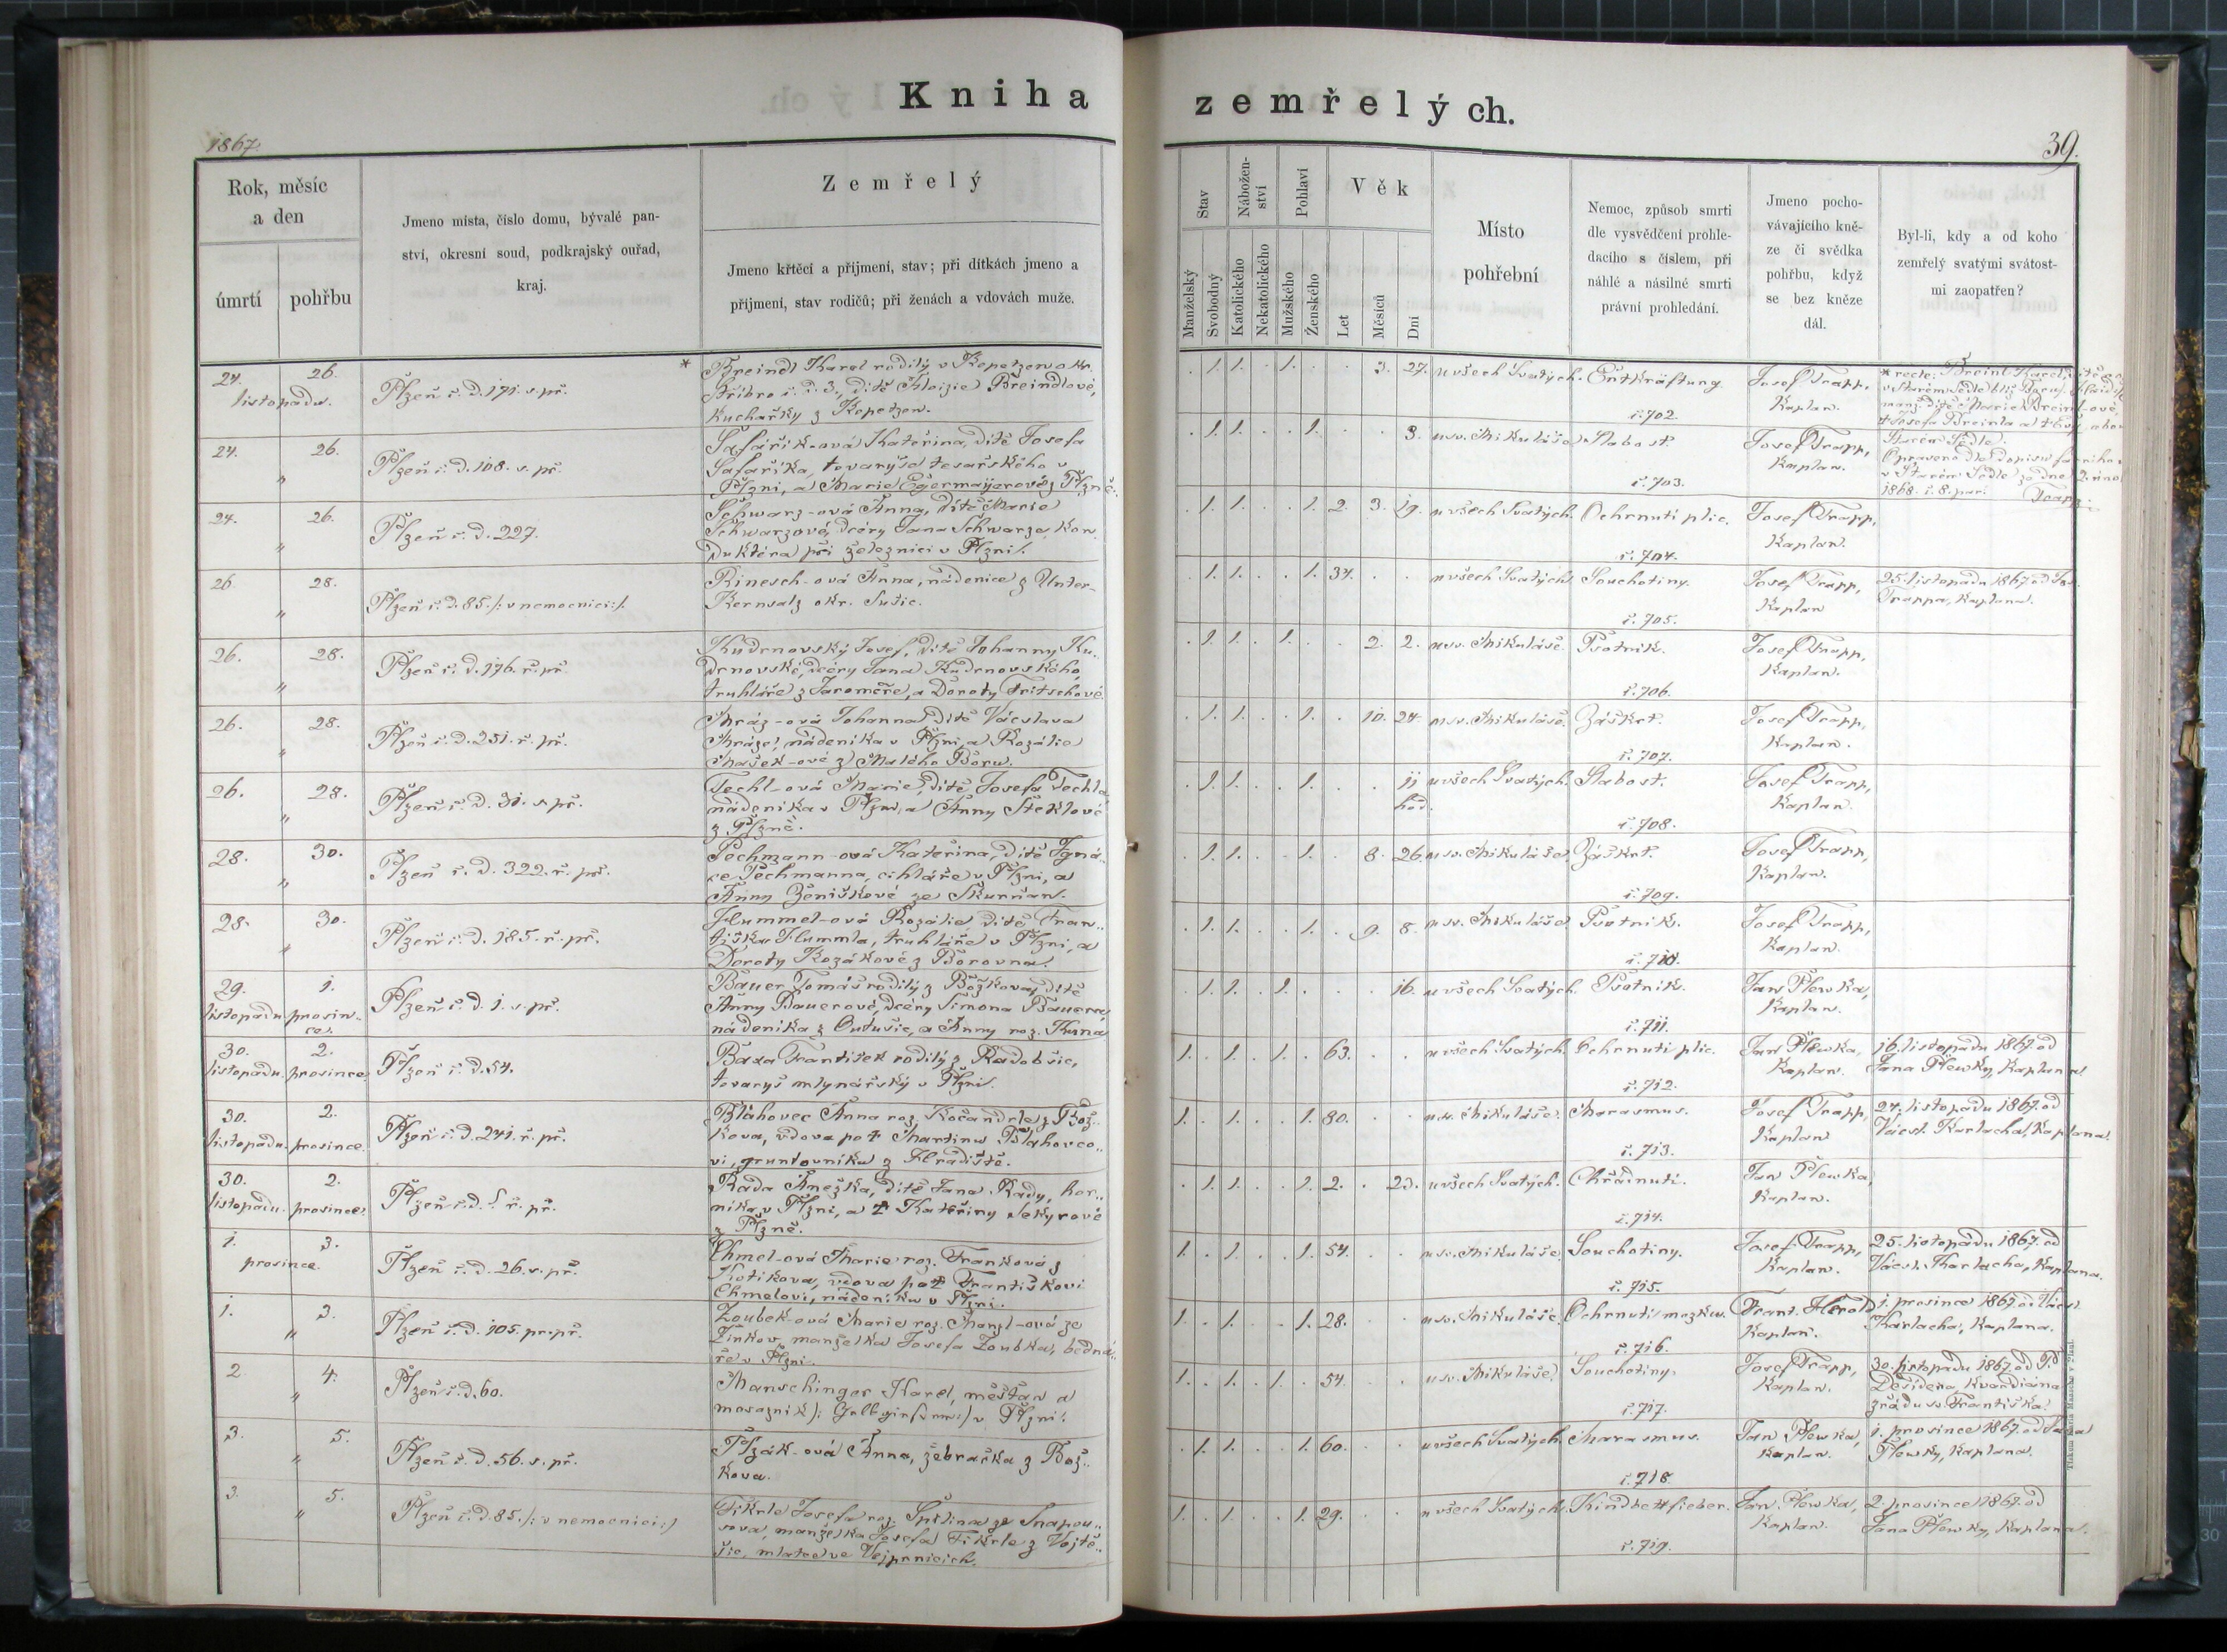 Kniha zemřelých.
1867.
39.
Rok, měsíc
a den
úmrtí
pohřbu
Jmeno místa, číslo domu, bývalé pan-
ství, okresní soud, podkrajský ouřad,
kraj.
Zemřelý
Jmeno křtěcí a příjmení, stav; při dítkách jmeno a
příjmení, stav rodičů; při ženách a vdovách muže.
Stav
Manželský
Svobodný
Nábožen-
ství
Katolického
Nekatolického
Pohlaví
Mužského
Ženského
Věk
Let
Měsíců
Dní
Místo
pohřební
Nemoc, způsob smrti
dle vysvědčení prohle-
dacího s číslem, při
náhlé a násilné smrti
právní prohledání.
Jmeno pocho-
vávajícího kně-
ze či svědka
pohřbu, když
se bez kněze
dál.
Byl-li, kdy a od koho
zemřelý svatými svátost-
mi zaopatřen?
24. 26.
listopadu.
Plzeň č. d. 171. s. př.
* Breindl Karel rodilý v Kopetzen okr.
Stříbro č. d. 3., dítě Aloizie Breindlové,
kuchařky z Kopetzen.
. 1. 1. . 1. . . 3. 27. u všech Svatých. Entkräftung
č. 702.
Josef Trapp,
Kaplan.
* recte: Breinl Karel
manž. dítě Marie Breinl-ové,
Starém Sedle.
v Starém Sedle
1868. č. 8. par. Trapp
24. 26.
"
Plzeň č. d. 108. s. př.
Šafařík-ová Kateřina, dítě Josefa
Šafaříka, tovaryše tesařského v
Plzni, a Marie Egermayerové z Plzně.
. 1. 1. . . 1. . . 3. u sv. Mikuláše. Slabost.
č. 703.
Josef Trapp,
Kaplan.
24. 26.
"
Plzeň č. d. 227.
Schwarz-ová Anna, dítě Marie
Schwarzové, dcéry Jana Schwarze, kon-
duktéra při železnici v Plzni.
. 1. 1. . . 1. 2. 3. 19. u všech Svatých. Ochrnutí plic.
č. 704.
Josef Trapp,
Kaplan.
26. 28.
"
Plzeň č. d. 85. /: v nemocnici :/.
Rinesch-ová Anna, nádenice z Unter-
Kernsalz okr. Sušic.
. 1. 1. . . 1. 34. . . u všech Svatých. Souchotiny.
č. 705.
Josef Trapp,
Kaplan
25. listopadu 1867. od Jos.
Trappa, kaplana.
26. 28.
"
Plzeň č. d. 176. ř. př.
Kudrnovský Josef, dítě Johanny Ku-
drnovské, dcéry Jana Kudrnovského,
truhláře z Jaroměře, a Doroty Fritschové.
. 1. 1. . 1. . . 2. 2. u sv. Mikuláše. Psotník.
č. 706.
Josef Trapp,
Kaplan.
26. 28.
"
Plzeň č. d. 251. ř. př.
Mráz-ová Johanna, dítě Václava
Mráze, nádeníka v Plzni, a Rozálie
Mašek-ové z Malého Boru.
. 1. 1. . . 1. . 10. 24. u sv. Mikuláše. Záškrt.
č. 707.
Josef Trapp,
Kaplan.
26. 28.
"
Plzeň č. d. 31. s. př.
Techl-ová Marie, dítě Josefa Techla,
nádeníka v Plzni, a Anny Šteklové
z Plzně.
. 1. 1. . . 1. . . 11 hod. u všech Svatých. Slabost.
č. 708.
Josef Trapp,
Kaplan.
28. 30.
"
Plzeň č. d. 322. ř. př.
Pechmann-ová Kateřina, dítě Igná-
ce Pechmanna, cihláře v Plzni, a
Anny Ženíškové ze Skurňan.
. 1. 1. . . 1. . 8. 26. u sv. Mikuláše. Záškrt.
č. 709.
Josef Trapp,
Kaplan.
28. 30.
"
Plzeň č. d. 185. ř. př.
Hummel-ová Rozálie, dítě Fran-
tiška Hummla, truhláře v Plzni, a
Doroty Kozákové z Borovna.
. 1. 1. . . 1. . 9. 8. u sv. Mikuláše. Psotník.
č. 710.
Josef Trapp,
Kaplan.
29. 1.
listopadu. prosin-
ce.
Plzeň č. d. 1. s. př.
Bauer Tomáš rodilý z Božkova, dítě
Anny Bauerové, dcéry Simona Bauera,
nádeníka z Outušic, a Anny roz. Kuna
. 1. 1. . 1. . . . 16. u všech Svatých. Psotník.
č. 711.
Jan Plewka,
Kaplan.
30. 2.
listopadu. prosince.
Plzeň č. d. 54.
Baxa František rodilý z Radobšic,
tovaryš mlynářský v Plzni.
1. . 1. . 1. . 63. . . u všech Svatých. Ochrnutí plic.
č. 712.
Jan Plewka,
Kaplan.
16. listopadu 1867. od
Jana Plewky, kaplana.
30. 2.
listopadu. prosince.
Plzeň č. d. 241. ř. př.
Bláhovec Anna roz. Kočandrle z Bož-
kova, vdova po † Martinu Blahovco-
vi, gruntovníku z Hradiště.
1. . 1. . . 1. 80. . . u sv. Mikuláše. Marasmus.
č. 713.
Josef Trapp,
Kaplan
24. listopadu 1867. od
Václ. Karlacha, kaplana.
30. 2.
listopadu. prosince.
Plzeň č. d. ř. př.
Rada Anežka, dítě Jana Rady, hor-
níka v Plzni, a † Kateřiny Sekyrové
z Plzně.
. 1. 1. . . 1. 2. . 23. u všech Svatých. Chřádnutí.
č. 714.
Jan Plewka,
Kaplan.
1. 3.
prosince.
Plzeň č. d. 26. s. př.
Chmel-ová Marie roz. Franková z
Kotikova, vdova po † Františkovi
Chmelovi, nádeníku v Plzni.
1. . 1. . . 1. 54. . . u sv. Mikuláše. Souchotiny.
č. 715.
Josef Trapp,
Kaplan.
25. listopadu 1867. od
Václ. Karlacha, kaplana.
1. 3.
"
Plzeň č. d. 105. pr. př.
Zoubek-ová Marie roz. Menzl-ová ze
Žinkov, manželka Josefa Zoubka, bedná-
ře v Plzni.
1. . 1. . . 1. 28. . . u sv. Mikuláše. Ochrnutí mozku.
č. 716.
Frant. Herold
Kaplan.
1. prosince 1867. od Václ.
Karlacha, kaplana.
2. 4.
"
Plzeň č. d. 60.
Manschinger Karel, měšťan a
mosazník /: Gelbgiesser :/ v Plzni.
1. . 1. . 1. . 54. . . u sv. Mikuláše. Souchotiny.
č. 717.
Josef Trapp,
Kaplan.
30. listopadu 1867. od P.
Desidera, kvardiána
z řádu sv. Františka.
3. 5.
"
Plzeň č. d. 56. s. př.
Plzák-ová Anna, žebračka z Bož-
kova.
. 1. 1. . . 1. 60. . . u všech Svatých. Marasmus.
č. 718.
Jan Plewka,
Kaplan.
1. prosince 1867. od Jana
Plewky, kaplana.
3. 5.
"
Plzeň č. d. 85. /: v nemocnici :/
Fikrle Josefa roz. Špilina ze Snopou-
sova, manželka Josefa Fikrle z Vojtě-
šic, mlatce ve Vejprnicích.
1. . 1. . . 1. 29. . . u všech Svatých. Kindbettfieber.
č. 719.
Jan Plewka,
Kaplan.
2. prosince 1867. od
Jana Plewky, kaplana.
Tiskem Karla Maasche v Plzni.